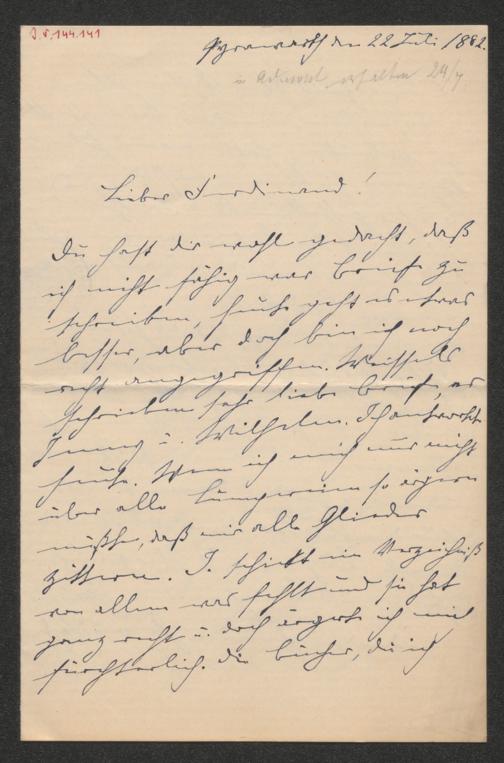 I.N. 144.141
Pyrawarth den 22 Juli 1882.
erhalten 24/7
Lieber Ferdinand!
Du hast dir wohl gedacht, daß
ich nicht fähig war Briefe zu
schreiben, heute geht es etwas
besser, aber doch bin ich noch
recht angegriffen. Weissels
schrieben sehr liebe Briefe, er
Jenny u. Wilhelm. Ich antworte
heute. Wenn ich mich nur nicht
über alle Lumpereien so ärgern
müßte, daß mir alle Glieder
zittern. J. schickt ein Verzeichniß
von allem was fehlt und sie hat
ganz recht u. doch ärgert ich mich
fürchterlich. Die Bücher, die ich